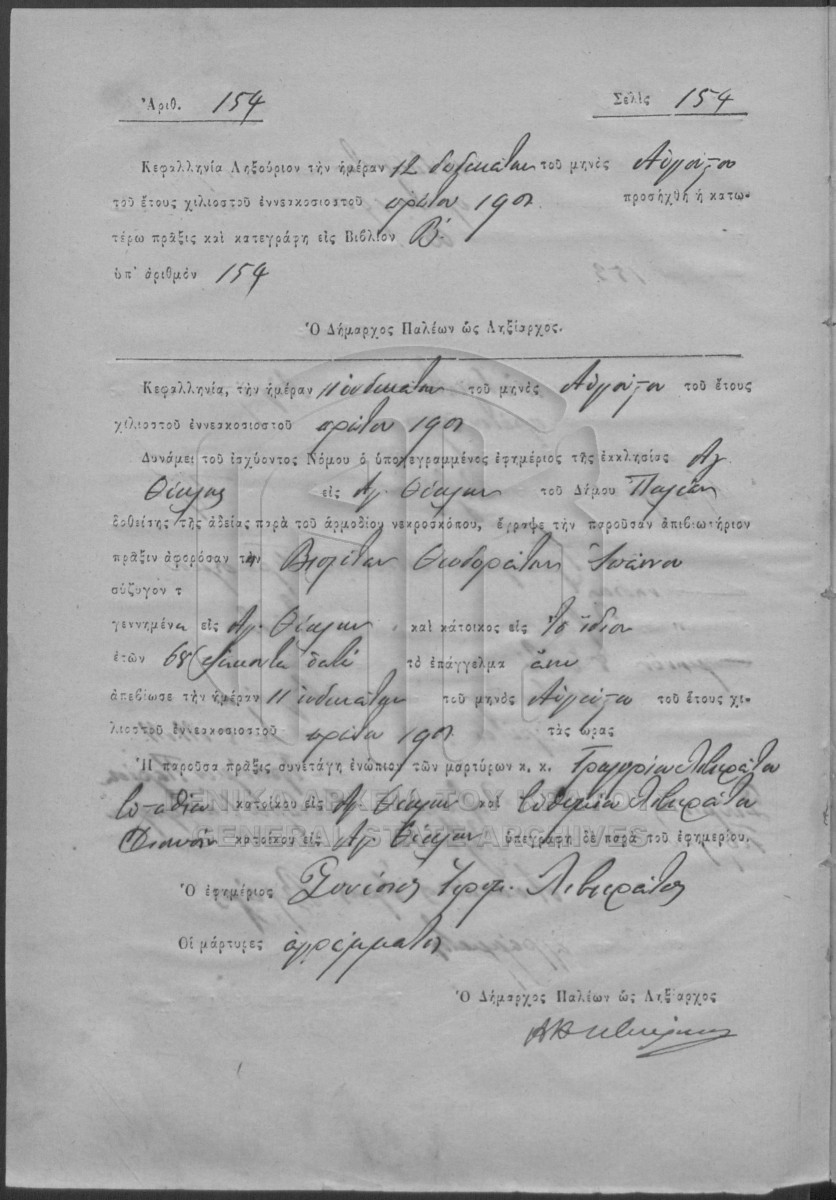 Ἀριθ. 154 Σελὶς 154
Κεφαλληνία Ληξούριον τὴν ἡμέραν 12 δωδεκάτην τοῦ μηνὸς Αὐγούστου
τοῦ ἔτους χιλιοστοῦ ἐννεακοσιοστοῦ πρώτου 1901 προσήχθη ἡ κατω-
τέρω πρᾶξις καὶ κατεγράφη εἰς Βιβλίον Β.
ὑπ' ἀριθμὸν 154
Ὁ Δήμαρχος Παλέων ὡς Ληξίαρχος.
Κεφαλληνία, τὴν ἡμέραν 11 ἑνδεκάτην τοῦ μηνὸς Αὐγούστου τοῦ ἔτους
χιλιοστοῦ ἐννεακοσιοστοῦ πρώτου 1901
Δυνάμει τοῦ ἰσχύοντος Νόμου ὁ ὑπογεγραμμένος ἐφημέριος τῆς ἐκκλησίας Ἁγ
Θέκλης εἰς Ἁγ. Θέκλην τοῦ Δήμου Παλέων
δοθείσης τῆς ἀδείας παρὰ τοῦ ἁρμοδίου νεκροσκόπου, ἔγραψε τὴν παροῦσαν ἀπιβιωτήριον
πρᾶξιν ἀφορόσαν τὴν Θεοδωράτου Ἰωάννου
σύζυγον τ
γεννημένα εἰς Ἁγ. Θέκλην καὶ κάτοικος εἰς τὸ ἴδιον
ἐτῶν 68 ἑξήκοντα ὀκτώ τὸ ἐπάγγελμα ἄνευ
ἀπεβίωσε τὴν ἡμέραν 11 ἑνδεκάτην τοῦ μηνὸς Αὐγούστου τοῦ ἔτους χι-
λιοστοῦ ἐννεακοσιοστοῦ πρώτου 1901 τὰς ὥρας
Ἡ παροῦσα πρᾶξις συνετάγη ἐνώπιον τῶν μαρτύρων κ. κ. Γρηγορίου Λιβιεράτου
κατοίκου εἰς Ἁγ Θέκλην καὶ Εὐθυμίου Λιβιεράτου
Διονυσίου κατοίκου εἰς Ἁγ. Θέκλην ὑπεγράφη δὲ παρὰ τοῦ ἐφημερίου.
ΓΕΝΙΚΑ ΑΡΧΕΙΑ ΤΟΥ ΚΡΑΤΟΥΣ
GENERAL STATE ARCHIVES
Ὁ ἐφημέριος Λιβιεράτος
Οἱ μάρτυρες ἀγράμματοι
Ὁ Δήμαρχος Παλέων ὡς Ληξίαρχος